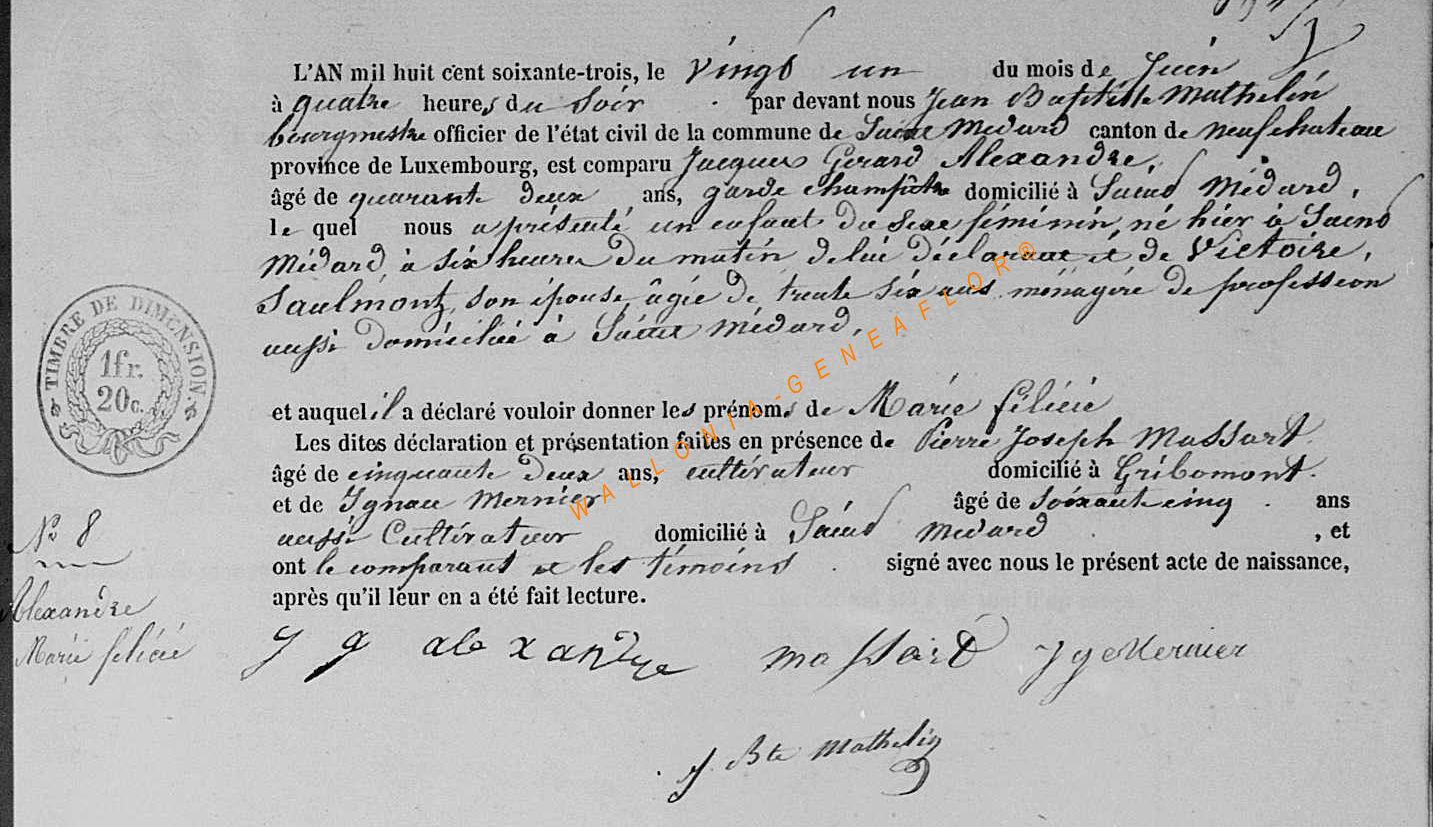 L'AN mil huit cent soixante-trois, le vingt un du mois de Juin
à quatre heures du soir par devant nous Jean Baptiste Mathelin
bourgmestre officier de l'état civil de la commune de Saint Médard canton de neufchateau
province de Luxembourg, est comparu Jacques Gerard Alexandre,
âgé de quarante deux ans, garde champêtre domicilié à Saint Médard,
le quel nous a présenté un enfant du sexe féminin, né hier à Saint
Médard, à six heures du matin de lui déclarant et de Victoire,
Saulmont, son épouse, âgée de trente six ans ménagère de profession
aussi domiciliée à Saint Médard,
TIMBRE DE DIMENSION.
1fr.
20c.
et auquel il a déclaré vouloir donner les prénoms de Marie félicie
Les dites déclaration et présentation faites en présence de Pierre Joseph Massart
âgé de cinquante deux ans, cultivateur domicilié à Gribomont.
et de Ignace Mernier âgé de soixante cinq ans
aussi Cultivateur domicilié à Saint Médard , et
ont le comparant et les témoins signé avec nous le présent acte de naissance,
après qu'il leur en a été fait lecture.
No 8
Alexandre
Marie félicie
J g alexandre massart Ige Mernier
J. Bte Mathelin
WALLONIA-GENEAFLOR®